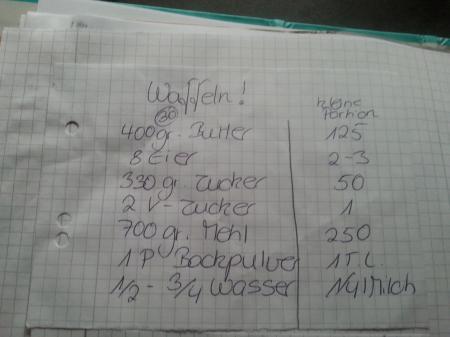 Waffeln!
kleine Portion
30
400gr. Butter 125
8 Eier 2-3
330 gr. Zucker 50
2 V-Zucker 1
700 gr. Mehl 250
1 P Backpulver 1 T.L.
1/2 - 3/4 Wasser 1/4 l Milch